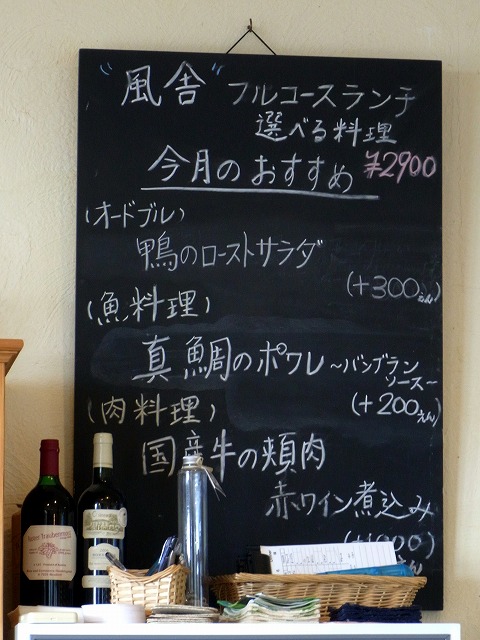 "風舎" フルコースランチ
選べる料理
¥2900
今月のおすすめ
(オードブル)
鴨のローストサラダ
(+300えん)
(魚料理)
真鯛のポワレ ~バンブラン
ソース~
(+200えん)
(肉料理)
国産牛の頬肉
赤ワイン煮込み